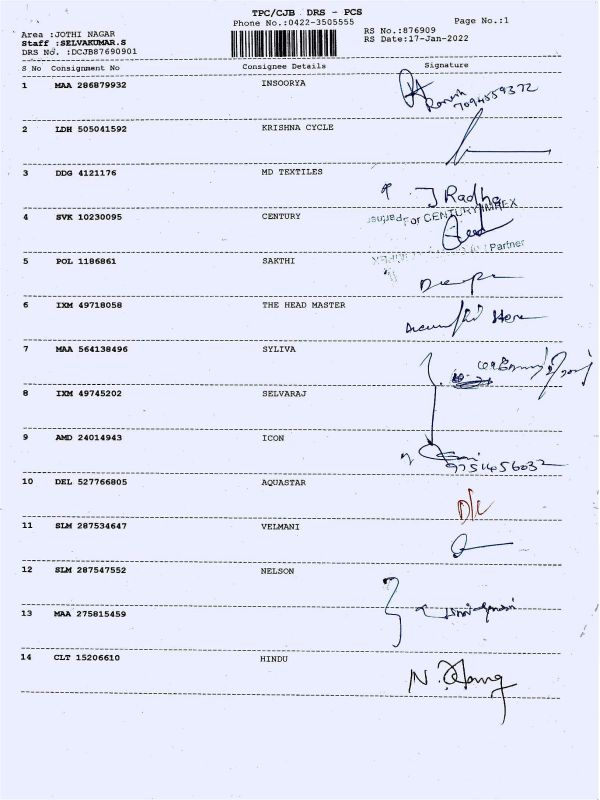 TPC/CJB DRS - PCS
Phone No.:0422-3505555 Page No.:1
Area :JOTHI NAGAR RS No.:876909
Staff :SELVAKUMAR.S RS Date:17-Jan-2022
DRS No. :DCJB87690901
S No Consignment No Consignee Details Signature
1 MAA 286879932 INSOORYA
Ramesh
7094559372
2 LDH 505041592 KRISHNA CYCLE
3 DDG 4121176 MD TEXTILES
J Radha
For CENTURY IMPEX
4 SVK 10230095 CENTURY
Partner
5 POL 1186861 SAKTHI
6 IXM 49718058 THE HEAD MASTER
7 MAA 564138496 SYLIVA
8 IXM 49745202 SELVARAJ
9 AMD 24014943 ICON
9751456032
10 DEL 527766805 AQUASTAR
D/L
11 SLM 287534647 VELMANI
12 SLM 287547552 NELSON
13 MAA 275815459
14 CLT 15206610 HINDU